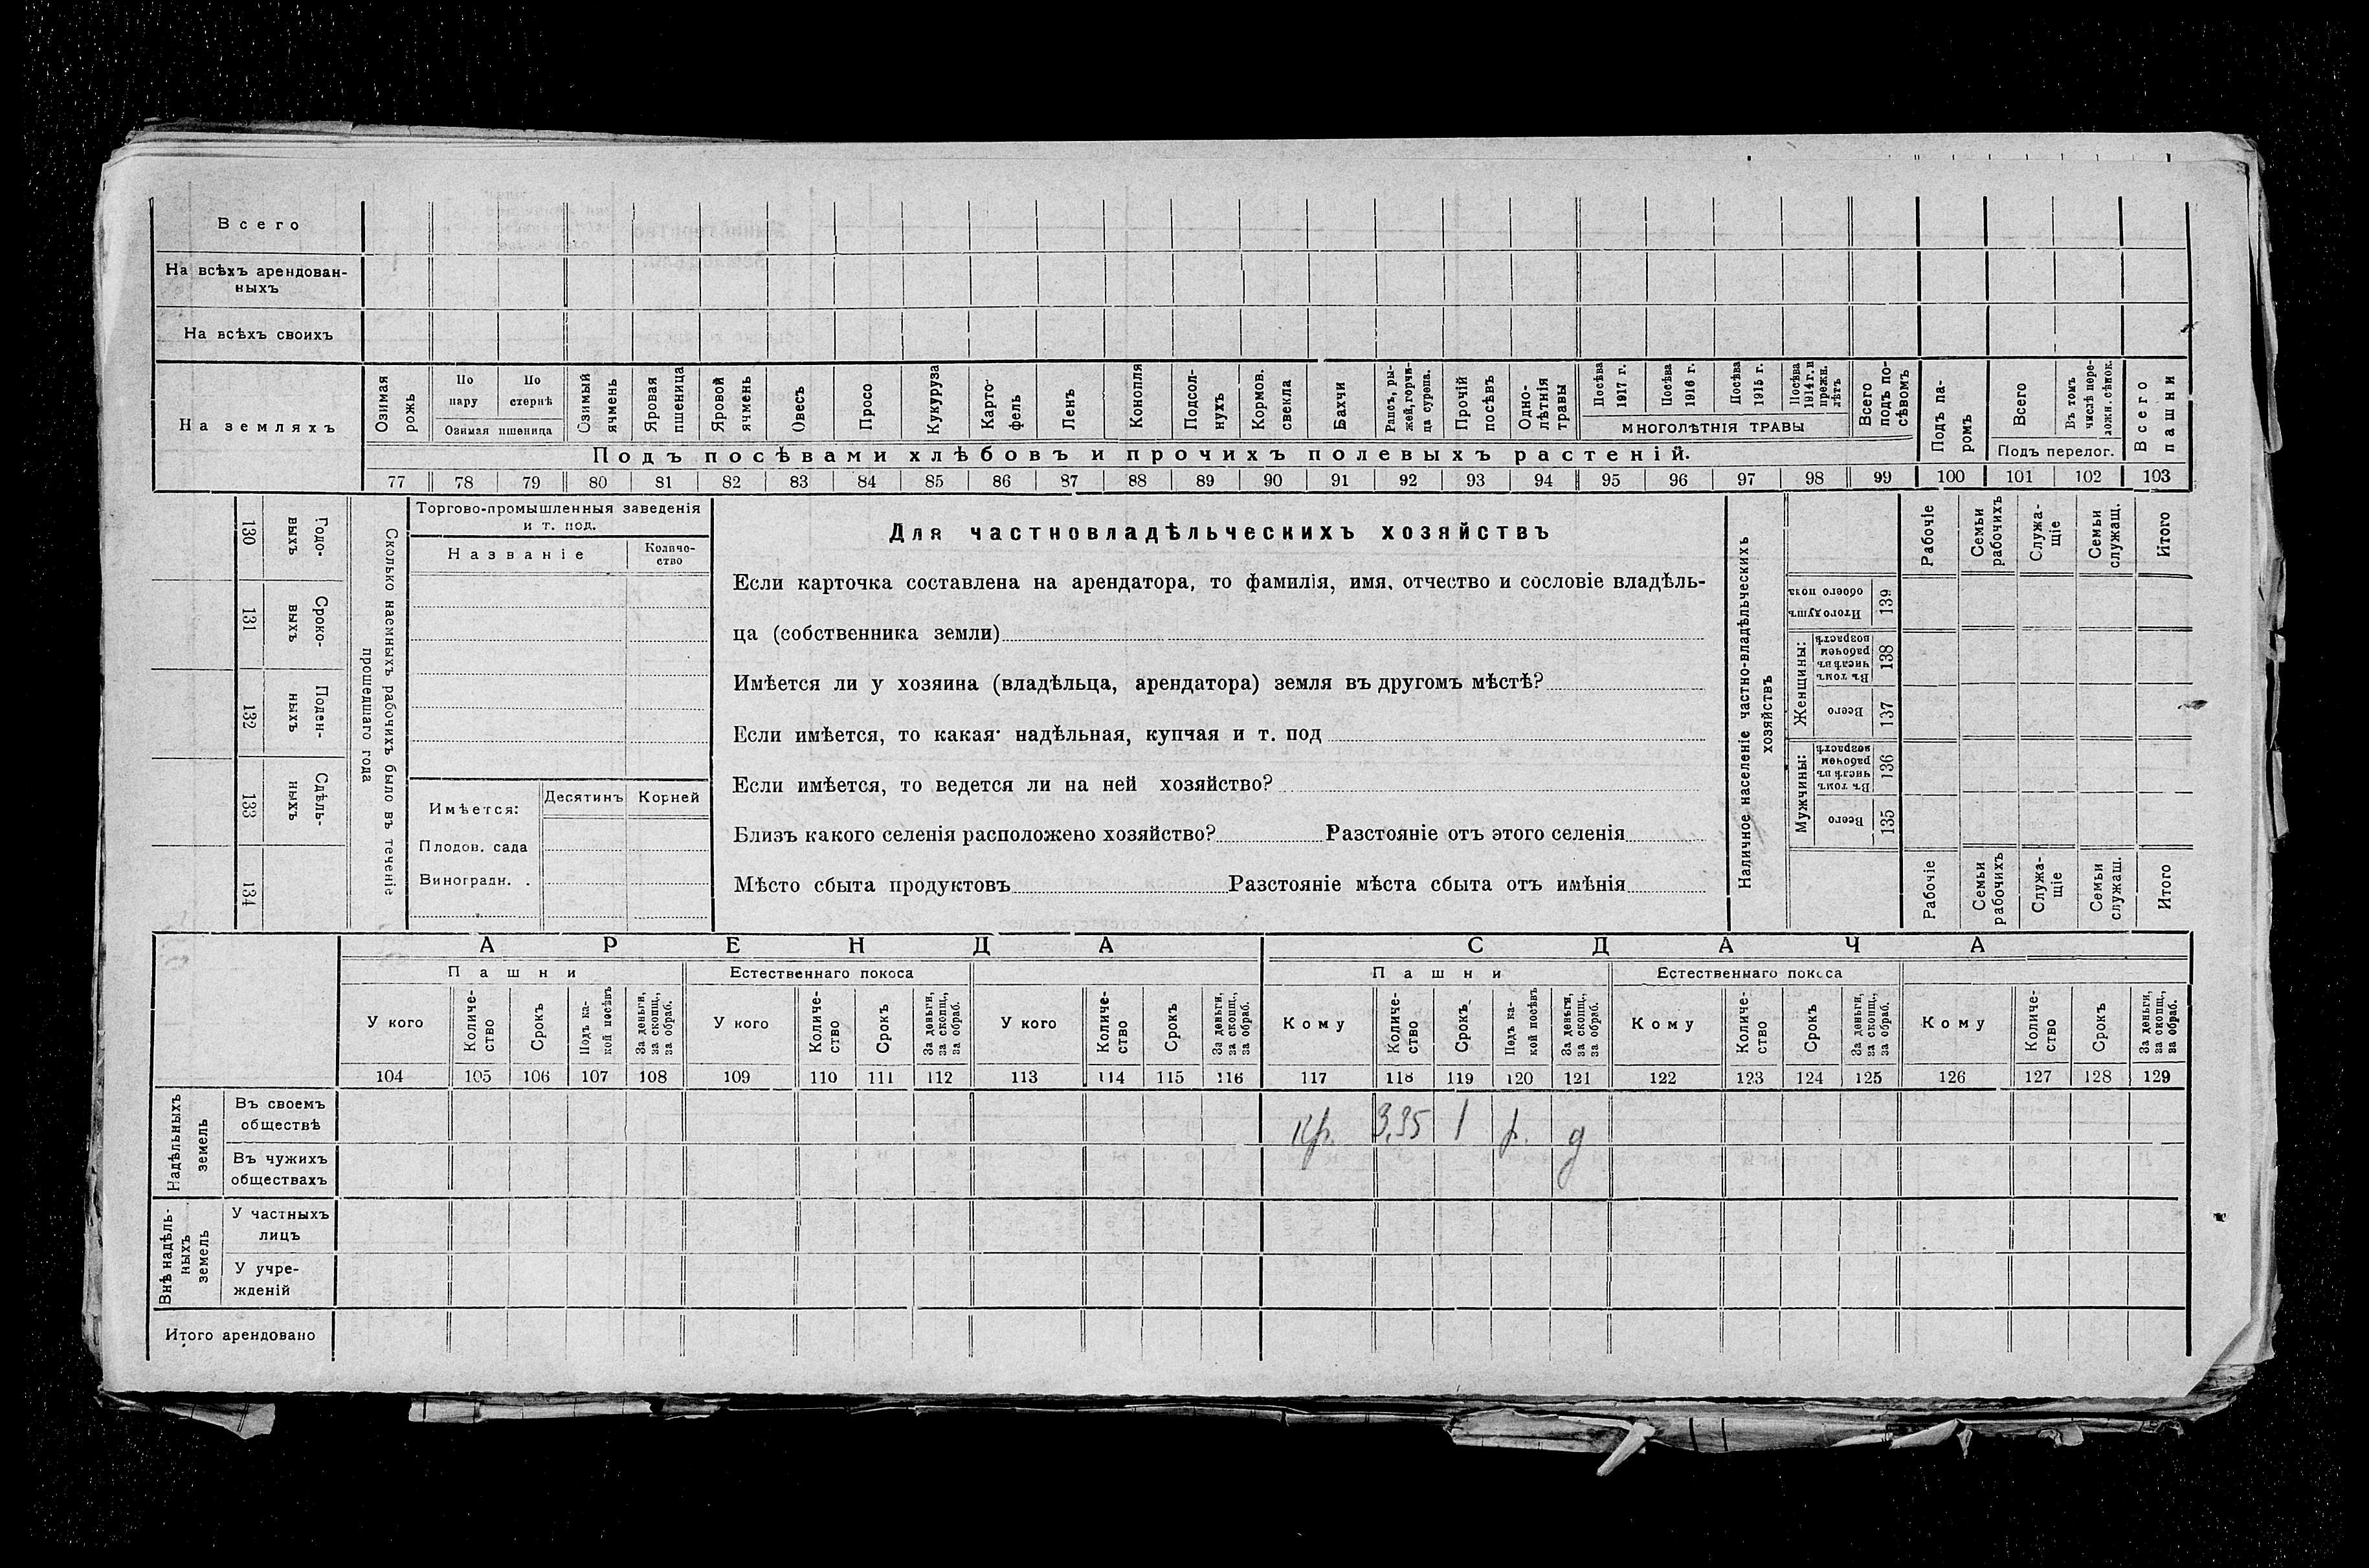 Всего
На всѣхъ арендован-
ныхъ
На всѣхъ своихъ
На земляхъ
Озимая рожь
По пару
По стернѣ
Озимая пшеница
Озимый ячмень
Яровая пшеница
Яровой ячмень
Овесъ
Просо
Кукуруза
Карто-
фель
Ленъ
Конопля
Подсол-
нухъ
Кормов.
свекла
Бахчи
Рапсъ, ры-
жей, горчи-
ца сурепа.
Прочій
посѣвъ
Одно-
лѣтнія
травы
Посѣва
1917 г.
Посѣва
1916 г.
Посѣва
1915 г.
Посѣва
1914 г. и
прежн.
лѣтъ
МНОГОЛѢТНІЯ ТРАВЫ
Всего
подъ по-
сѣвомъ
Подъ па-
ромъ
Всего
Въ томъ
числѣ пере-
ложн. сѣнок.
Подъ перелог.
Всего
пашни
Подъ посѣвами хлѣбовъ и прочихъ полевыхъ растеній.
77 78 79 80 81 82 83 84 85 86 87 88 89 90 91 92 93 94 95 96 97 98 99 100 101 102 103
130
Годо-
выхъ
131
Сроко-
выхъ
132
Поден-
ныхъ
133
Сдѣль-
ныхъ
134
Сколько наемныхъ рабочихъ было въ теченіе
прошедшаго года
Торгово-промышленныя заведенія
и т. под.
Названіе
Количе-
ство
Имѣется:
Десятинъ
Корней
Плодов. сада
Виноградн. .
Для частновладѣльческихъ хозяйствъ
Если карточка составлена на арендатора, то фамилія, имя, отчество и сословіе владѣль-
ца (собственника земли)
Имѣется ли у хозяина (владѣльца, арендатора) земля въ другомъ мѣстѣ?
Если имѣется, то какая· надѣльная, купчая и т. под
Если имѣется, то ведется ли на ней хозяйство?
Близъ какого селенія расположено хозяйство? Разстояніе отъ этого селенія
Мѣсто сбыта продуктовъ Разстояніе мѣста сбыта отъ имѣнія
Наличное населеніе частно-владѣльческихъ
хозяйствъ
Рабочіе
Семьи
рабочихъ
Служа-
щіе
Семьи
служащ.
Итого
Итого душъ
обоего пола
139
Женщины:
Въ томъ
числѣ въ
рабочем
возрастѣ
138
Всего
137
Мужчины:
Въ томъ
числѣ въ
рабочем
возрастѣ
136
Всего
135
Рабочіе
Семьи
рабочихъ
Служа-
щіе
Семьи
служащ.
Итого
АРЕНДА
СДАЧА
Пашни
Естественнаго покоса
Пашни
Естественнаго покоса
У кого
Количе-
ство
Срокъ
Подъ ка-
кой посѣвъ
За деньги,
за скопщ.,
за обраб.
У кого
Количе-
ство
Срокъ
За деньги,
за скопщ.,
за обраб.
У кого
Количе-
ство
Срокъ
За деньги,
за скопщ.,
за обраб.
Кому
Количе-
ство
Срокъ
Подъ ка-
кой посѣвъ
За деньги,
за скопщ.,
за обраб.
Кому
Количе-
ство
Срокъ
За деньги,
за скопщ.,
за обраб.
Кому
Количе-
ство
Срокъ
За деньги,
за скопщ.,
за обраб.
104 105 106 107 108 109 110 111 112 113 114 115 116 117 118 119 120 121 122 123 124 125 126 127 128 129
Надѣльныхъ
земель
Въ своемъ
обществѣ
кр. 3,35 1 р. д
Въ чужихъ
обществахъ
Внѣ надѣль-
ныхъ
земель
У частныхъ
лицъ
У учре-
жденій
Итого арендовано